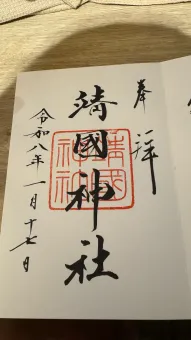 奉拝
靖國神社
令和八年一月十七日
靖國
神社